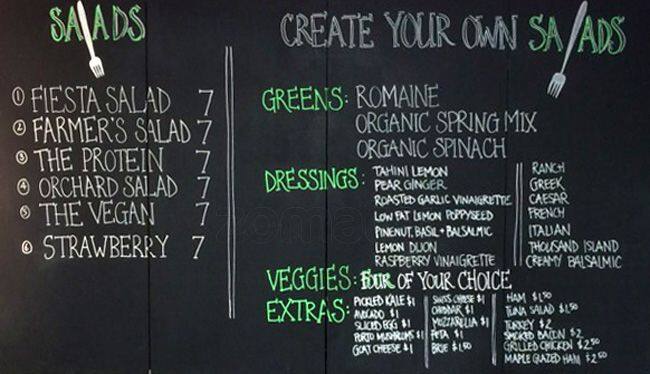 SALADS
① FIESTA SALAD 7
② FARMER'S SALAD 7
③ THE PROTEIN 7
④ ORCHARD SALAD 7
⑤ THE VEGAN 7
⑥ STRAWBERRY 7
CREATE YOUR OWN SALADS
GREENS: ROMAINE
ORGANIC SPRING MIX
ORGANIC SPINACH
DRESSINGS:
TAHINI LEMON
PEAR GINGER
ROASTED GARLIC VINAIGRETTE
LOW FAT LEMON POPPYSEED
PINENUT, BASIL + BALSALMIC
LEMON DIJON
RASPBERRY VINAIGRETTE
RANCH
GREEK
CAESAR
FRENCH
ITALIAN
THOUSAND ISLAND
CREAMY BALSALMIC
VEGGIES: FOUR OF YOUR CHOICE
EXTRAS:
PICKLED KALE $1
AVOCADO $1
SLICED EGG $1
PORTO MUSHROOMS $1
GOAT CHEESE $1
SWISS CHEESE $1
CHEDDAR $1
MOZZARELLA $1
FETA $1
BRIE $1.50
HAM $1.50
TUNA SALAD $1.50
TURKEY $2
SMOKED BACON $2
GRILLED CHICKEN $2.50
MAPLE GLAZED HAM $2.50